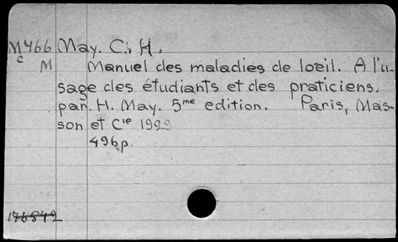 M466 May. C., H.
c M Manuel des maladies de loeil. A l'u-
sage des étudiants et des praticiens.
par. H. May. 5me edition. Paris, Mas-
son et Cie 1929
496p.
176849